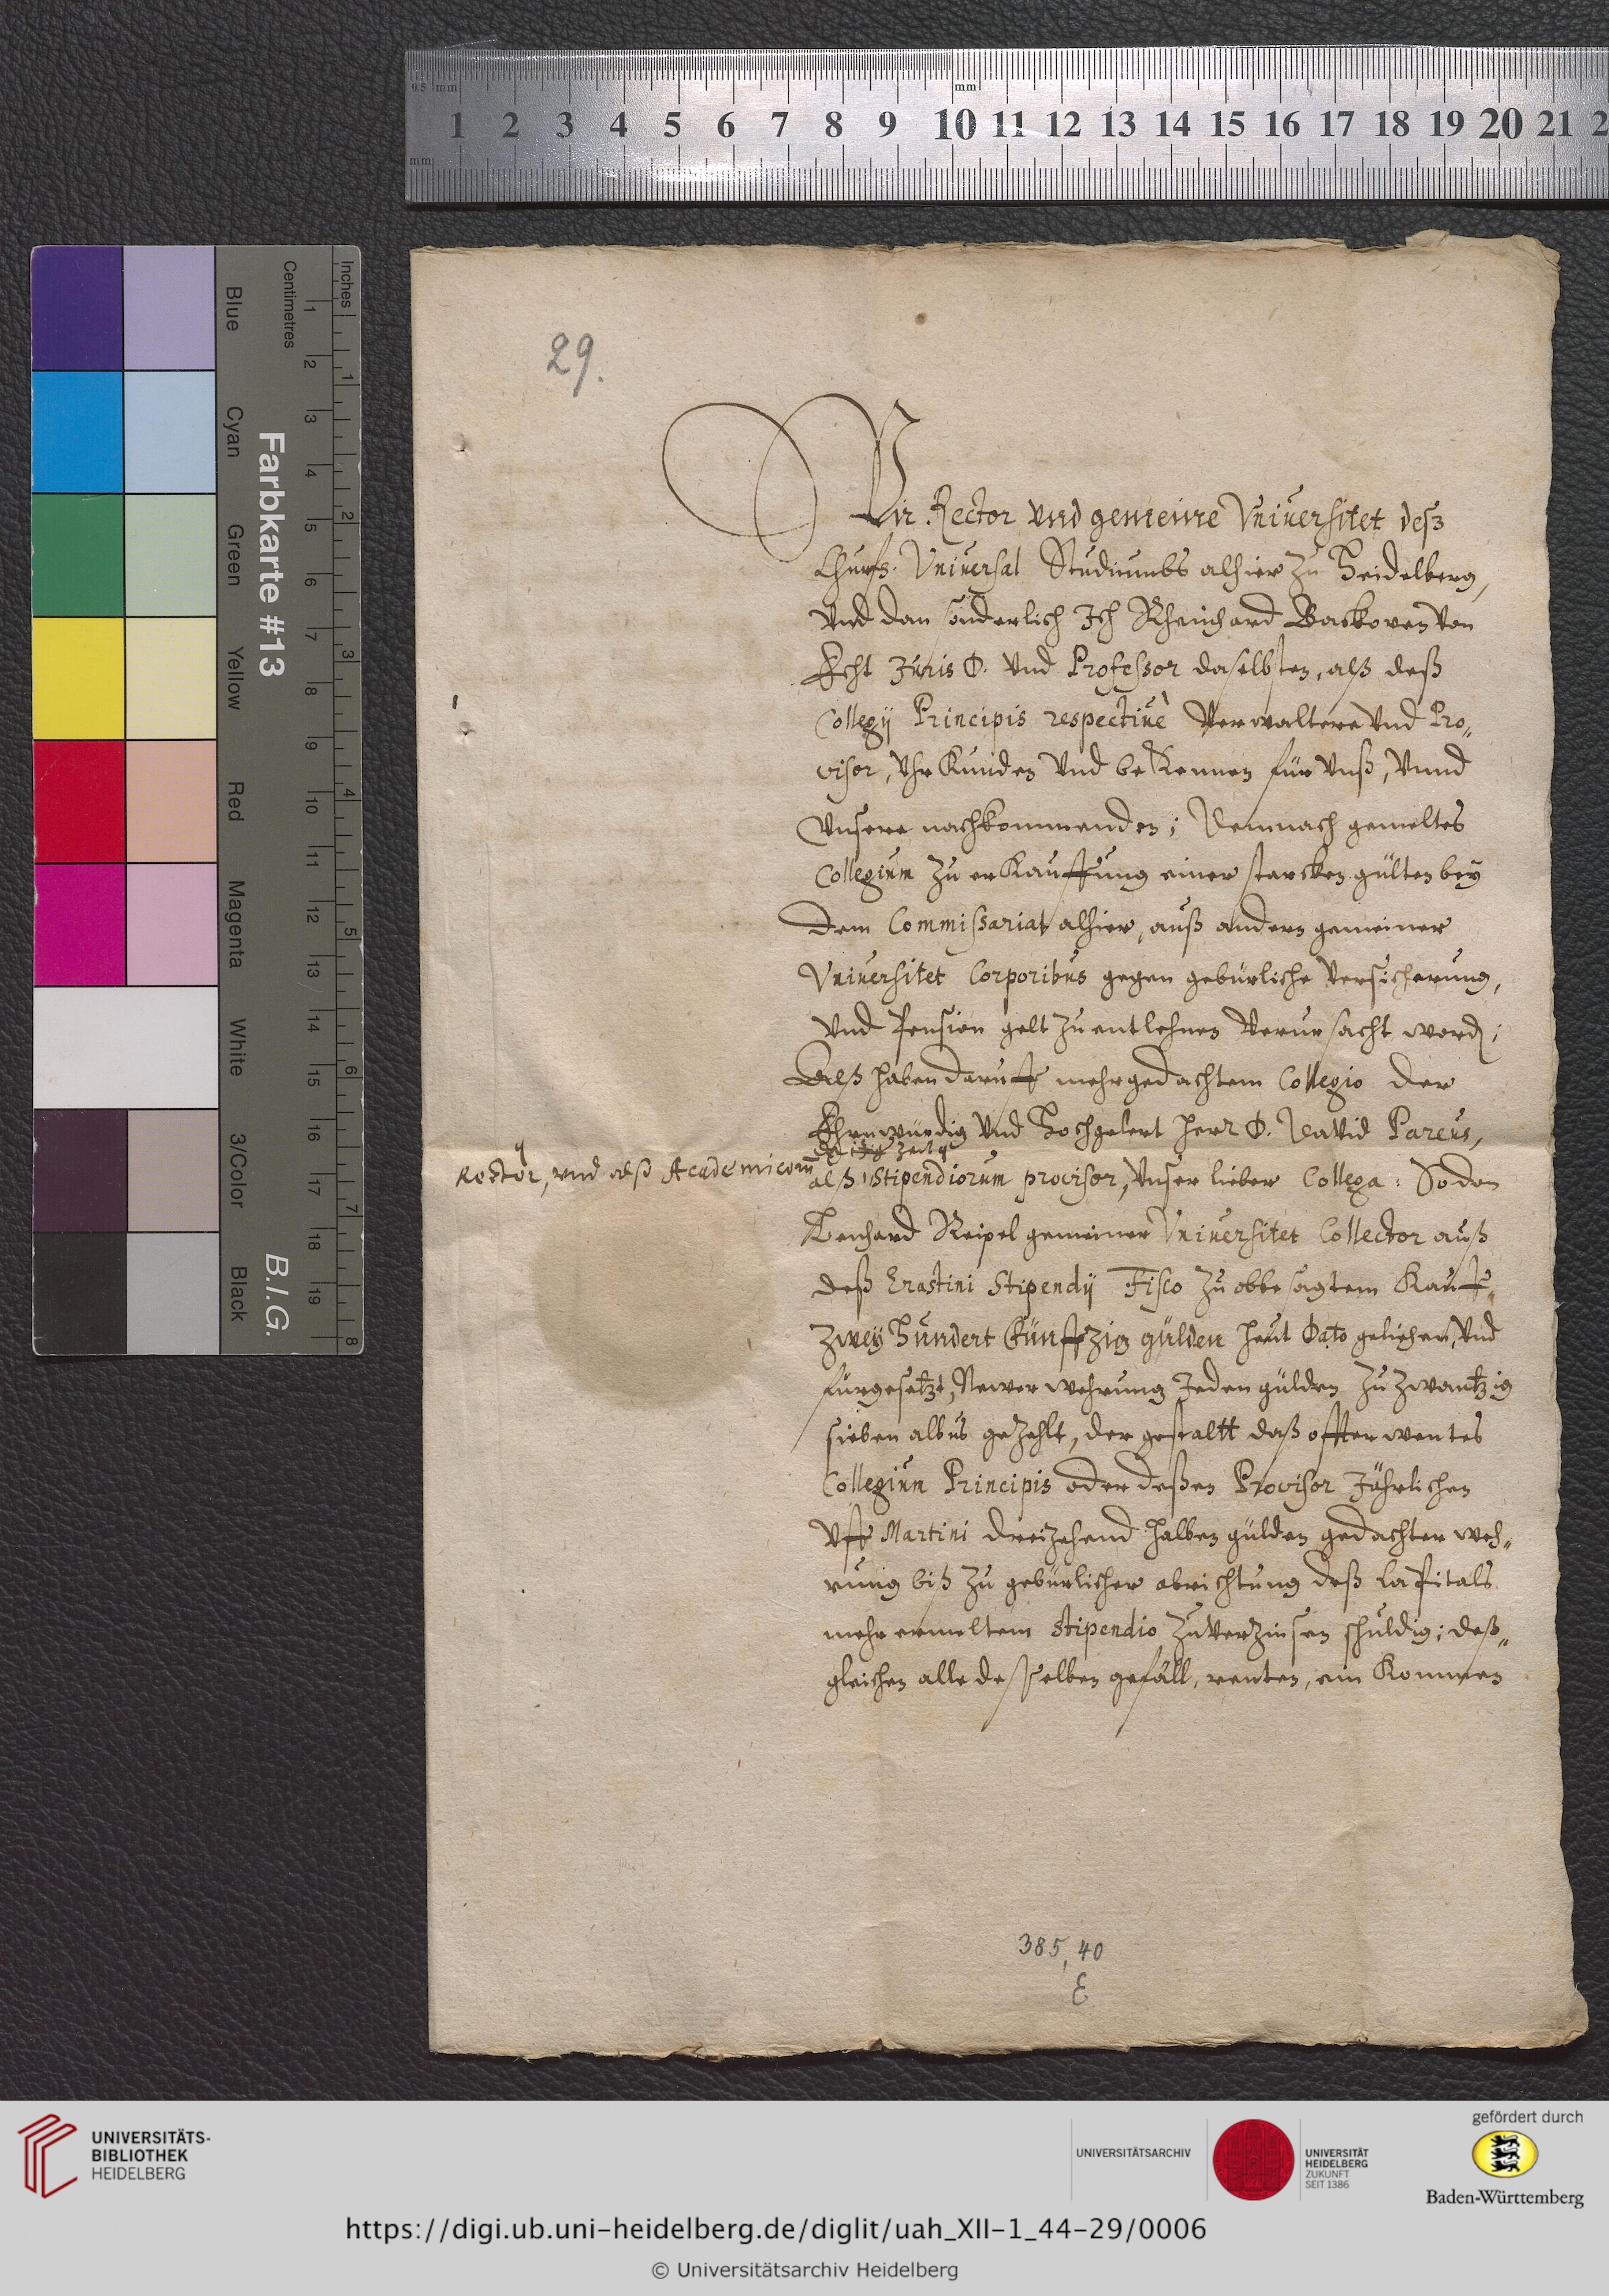 0.5 mm
mm
1 2 3 4 5 6 7 8 9 10 11 12 13 14 15 16 17 18 19 20 21 2
mm
Inches
Centimetres
Farbkarte #13
B.I.G.
Blue
Cyan
Green
Yellow
Red
Magenta
White
3/Color
Black
29.
Wir Rector vnd gemeine Vniuersitet deß
Churf. Vniuersal Studiumbs alhier zu Heidelberg,
vnd dan sonderlich Ich Rheinhard Backoven von
Echt Juris D. vnd Professor daselbsten, alß deß
Collegij Principis respectiuè Verwaltere vnd Pro„
visor, Vhrkunden vnd bekennen für vnß, vnnd
vnsere nachkommenden; Demnach gemeltes
Collegium zu erkauffung einer starcken gülten bey
dem Commissariat alhier, auß andern gemeiner
Vniuersitet Corporibus gegen gebürliche versicherung,
vnd Pension gelt zu entlehnen verursacht word;
Alß haben daruff mehrgedachtem Collegio der
Ehrnwürdig vnd Hochgelert Herr D. Dauid Pareus,
zeitt
Rector, vnd alß Academicorum
alß Stipendiorum provisor, vnser lieber Collega: So dan
Lenhard Reipel gemeiner Vniuersitet Collector auß
deß Erastini Stipendij Fisco zu obbesagtem Kauff„
zwey Hundert Fünffzig gülden heut Dato geliehen, vnd
fürgesetzt, Newer wehrung Jeden gülden zu zwantzig
sieben albus gezehlt, der gestaltt daß offterwentes
Collegium Principis oder deßen Provisor Jährlichen
vff Martini dreizehend halben gülden gedachter weh„
rung biß zu gebürlicher abrichtung deß Capitals
mehr ermeltem Stipendio zu verzinsen schuldig; deß„
gleichen alle desselben gefäll, renten, ein Kommen
385,40
E
UNIVERSITÄTS-
BIBLIOTHEK
HEIDELBERG
UNIVERSITÄTSARCHIV
UNIVERSITÄT
HEIDELBERG
ZUKUNFT
SEIT 1386
gefördert durch
Baden-Württemberg
https://digi.ub.uni-heidelberg.de/diglit/uah_XII-1_44-29/0006
© Universitätsarchiv Heidelberg